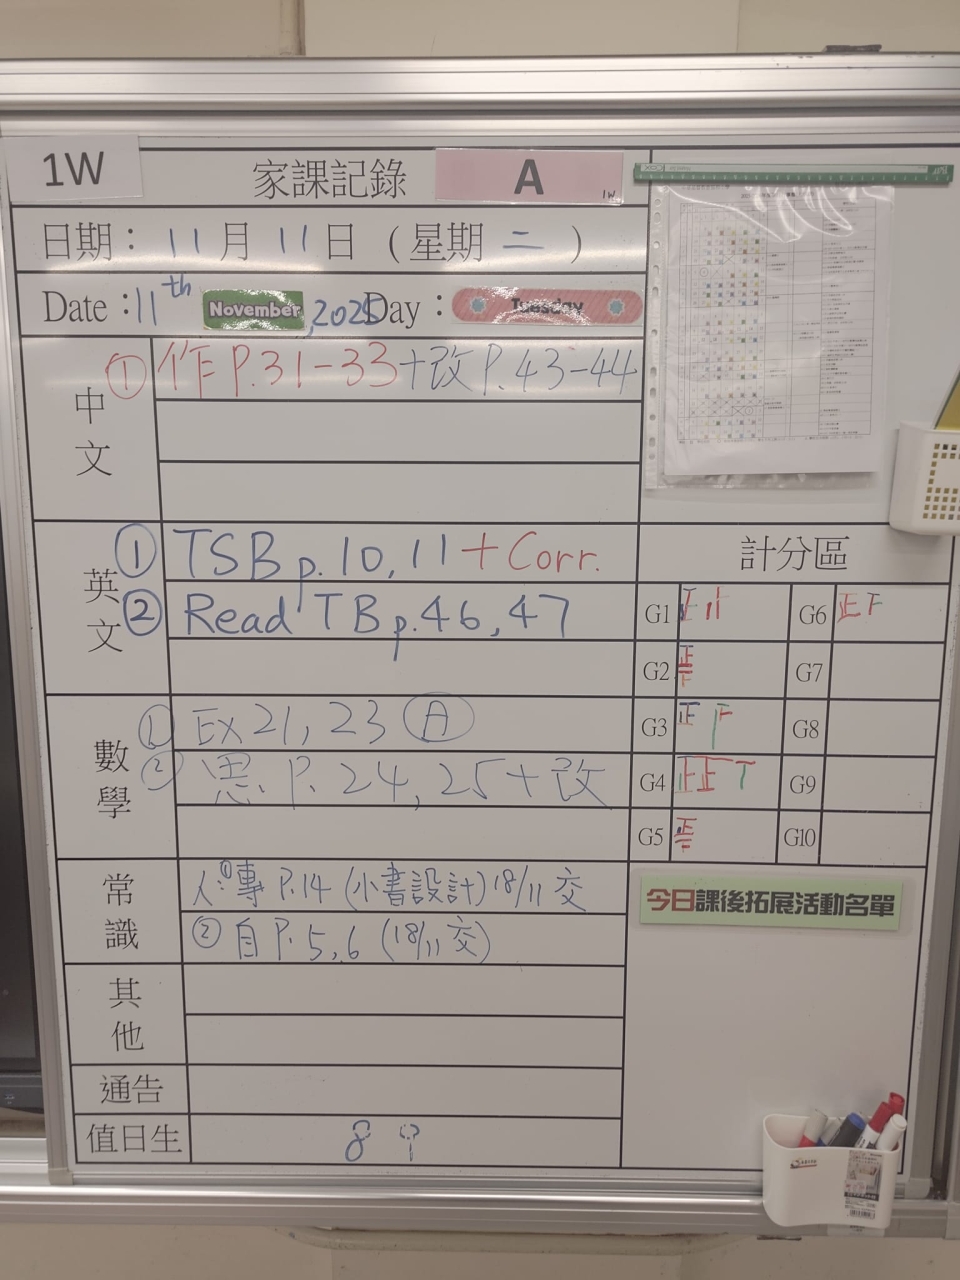 1W
家課記錄
A
1W
日期：11月11日（星期二）
Date：11th November, 2025 Day：Tuesday
中文
① 作 P.31-33+改 P.43-44
英文
① TSB p.10,11 + Corr.
② Read TB p.46,47
數學
① Ex 21, 23 Ⓐ
② 思 P.24,25+改
常識
人:①專 P.14 (小書設計) 18/11 交
② 自 P.5,6 (18/11 交)
其他
通告
值日生
8 9
計分區
G1 正
G6 正
G2 正
G7
G3 正
G8
G4 正正
G9
G5 正
G10
今日課後拓展活動名單